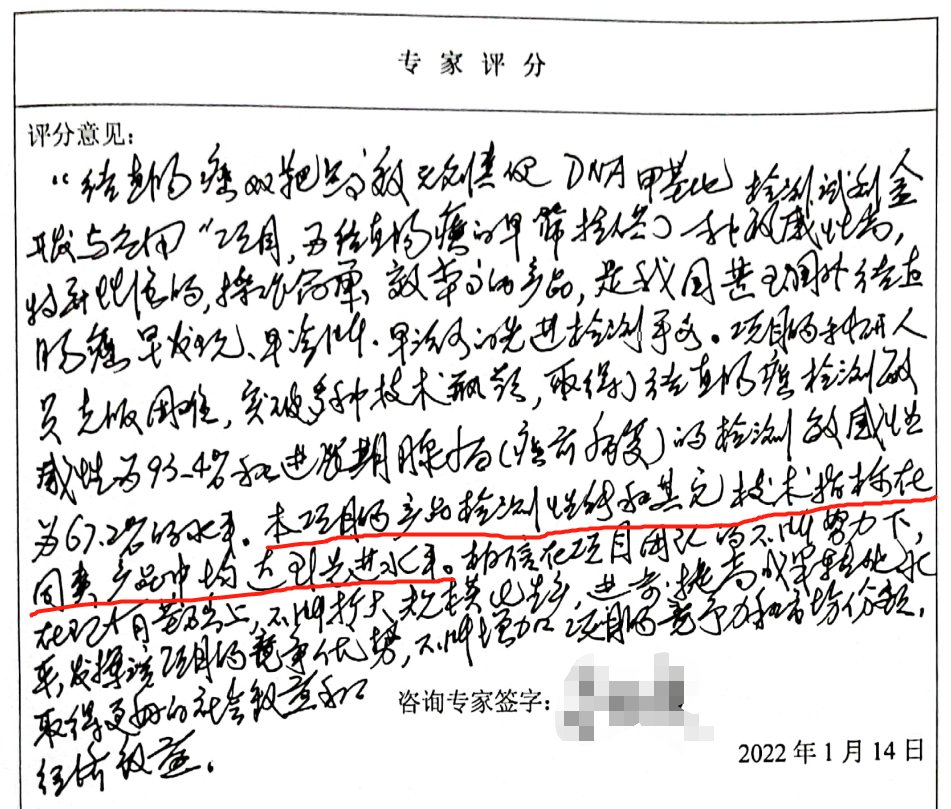 专家评分
评分意见：
“结直肠癌双靶点高效无创粪便DNA甲基化检测试剂盒
开发与应用”项目，为结直肠癌的早筛提供了一种敏感性高，
特异性好的，操作简单，效率高的产品，是我国甚至国外结直
肠癌早发现、早诊断、早治疗的先进检测手段。项目的科研人
员克服困难，突破多种技术瓶颈，取得了结直肠癌检测敏
感性为93.4%和进展期腺瘤（癌前病变）的检测敏感性
为67.2%的水平。本项目的产品检测性能和其它技术指标在
同类产品中均达到先进水平。相信在项目团队的不断努力下，
在现有基础上，不断扩大规模化生产，进一步提高成果转化水
平，发挥该项目的竞争优势，不断增加项目的竞争力和市场份额，
取得更好的社会效益和
经济效益。
咨询专家签字：
2022年1月14日